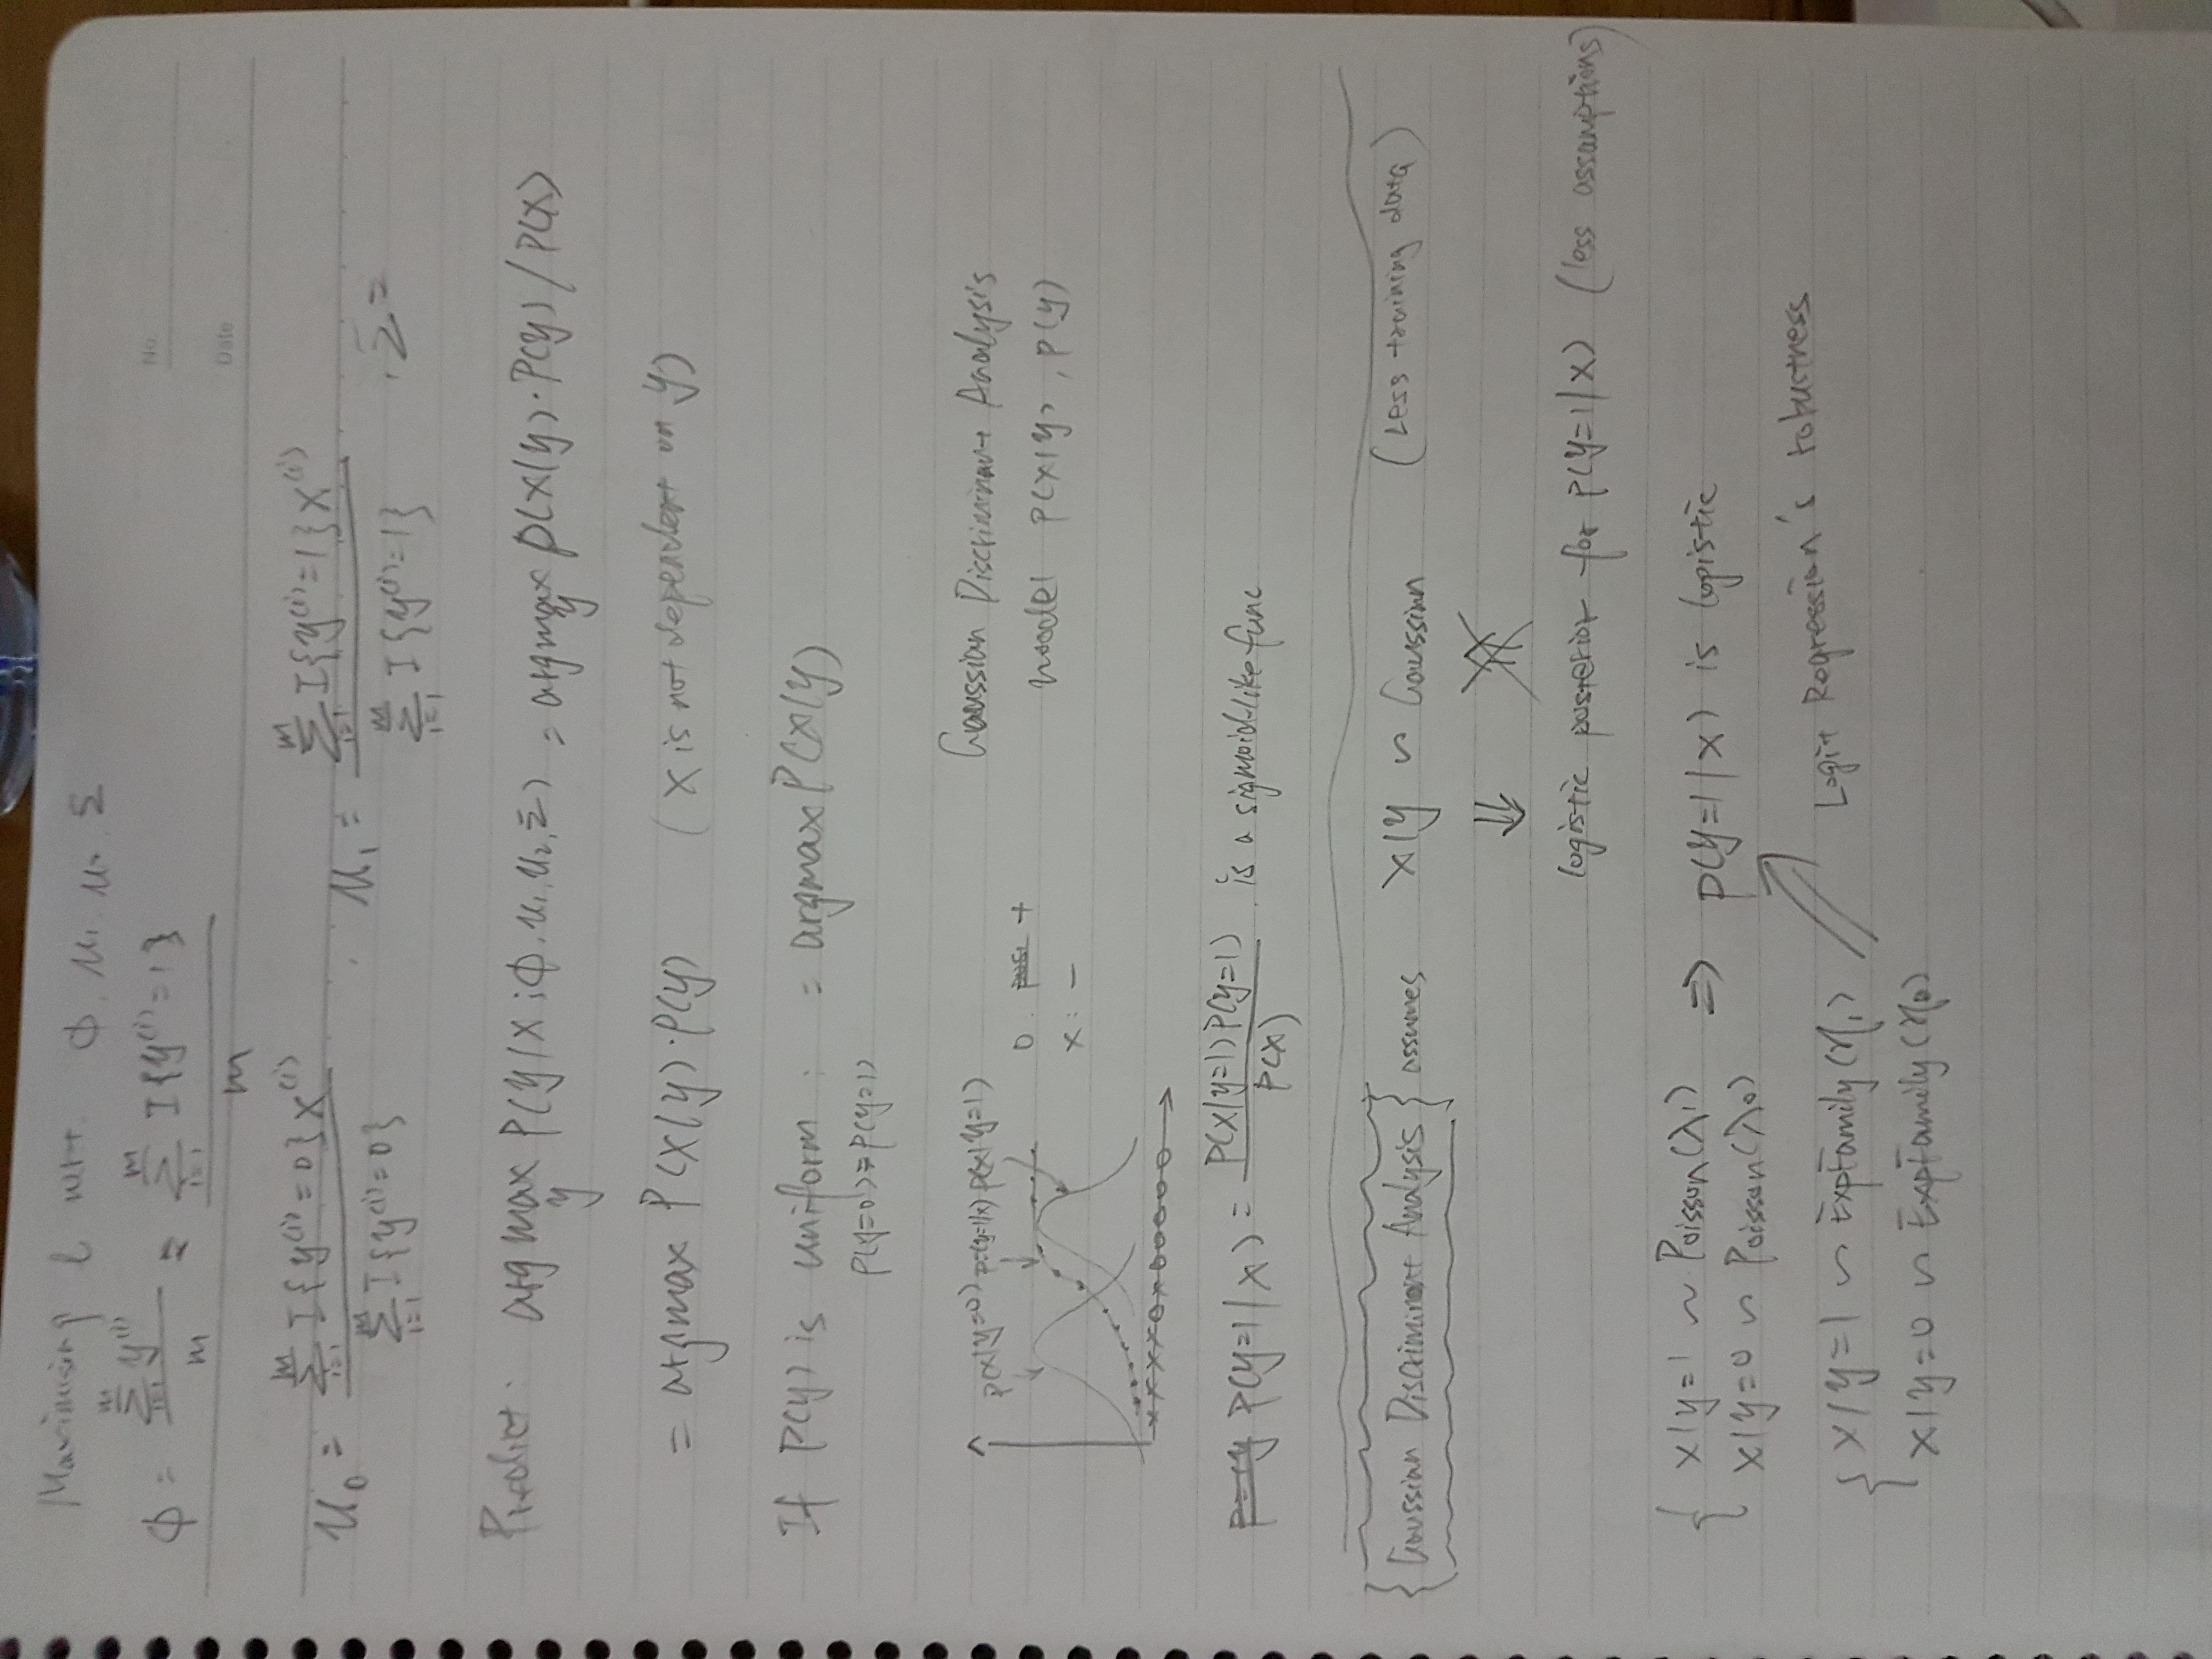 Maximising ℓ wrt. ϕ, μ₁, μ₀, Σ
No.
ϕ = \frac{\sum_{i=1}^{m} y^{(i)}}{m} = \frac{\sum_{i=1}^{m} I\{y^{(i)}=1\}}{m}
Date
μ₀ = \frac{\sum_{i=1}^{m} I\{y^{(i)}=0\}x^{(i)}}{\sum_{i=1}^{m} I\{y^{(i)}=0\}} , μ₁ = \frac{\sum_{i=1}^{m} I\{y^{(i)}=1\}x^{(i)}}{\sum_{i=1}^{m} I\{y^{(i)}=1\}} , Σ=
Predict. arg max_y P(y|x ; ϕ, μ₁, μ₂, Σ) = argmax_y p(x|y)·P(y)/P(x)
= argmax P(x|y)·P(y) (x is not dependent on y)
If P(y) is uniform : = argmax P(x|y)
P(y=0)=P(y=1)
p(x|y=0) p=(y=1|x) p(x|y=1)
o. +
x: −
Gaussian Discriminant Analysis
model p(x|y), p(y)
××××o×ooooo
P(y=1|x) = \frac{P(x|y=1)P(y=1)}{P(x)} . is a sigmoid-like func
{Gaussian Discriminant Analysis} assumes x|y ~ Gaussian (Less training data)
⇓ ⇑
logistic posterior for p(y=1|x) (less assumptions)
{ x|y=1 ~ Poisson(λ₁) ⇒ p(y=1|x) is logistic
x|y=0 ~ Poisson(λ₀)
Logit Regression's robustness
{ x|y=1 ~ ExpFamily(η₁)
x|y=0 ~ ExpFamily(η₀)